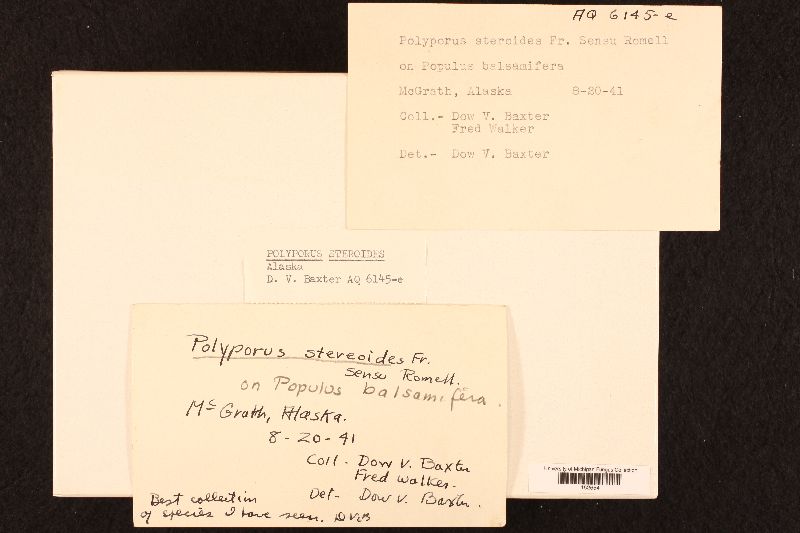 AQ 6145-e
Polyporus steroides Fr. Sensu Romell
on Populus balsamifera
McGrath, Alaska 8-20-41
Coll.- Dow V. Baxter
Fred Walker
Det.- Dow V. Baxter
POLYPORUS STEROIDES
Alaska
D. V. Baxter AQ 6145-e
Polyporus stereoides Fr.
sensu Romell.
on Populus balsamifera.
Mc Grath, Alaska.
8-20-41
Coll - Dow V. Baxter
Fred Walker.
Det- Dow V. Baxter.
Best collection
of species I have seen. DVB
University of Michigan Fungus Collection